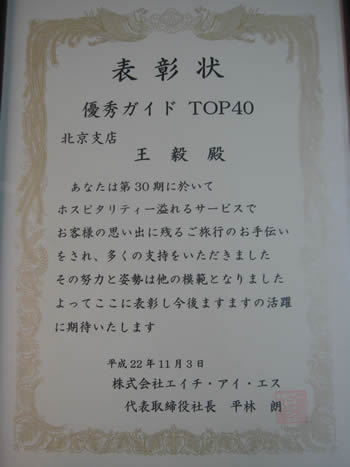 表彰状
優秀ガイド TOP40
北京支店
王毅殿
あなたは第30期に於いて
ホスピタリティー溢れるサービスで
お客様の思い出に残るご旅行のお手伝い
をされ、多くの支持をいただきました
その努力と姿勢は他の模範となりました
よってここに表彰し今後ますますの活躍
に期待いたします
平成22年11月3日
株式会社エイチ・アイ・エス
代表取締役社長 平林 朗